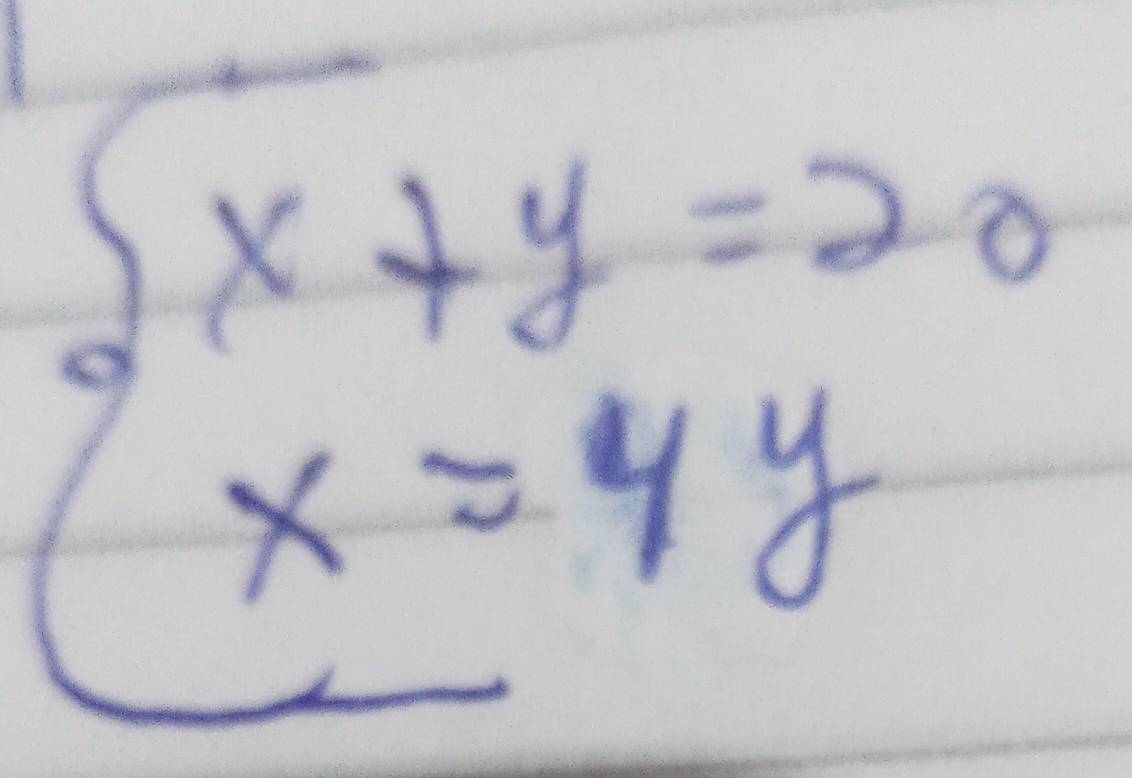 x + y = 20
x = 4y